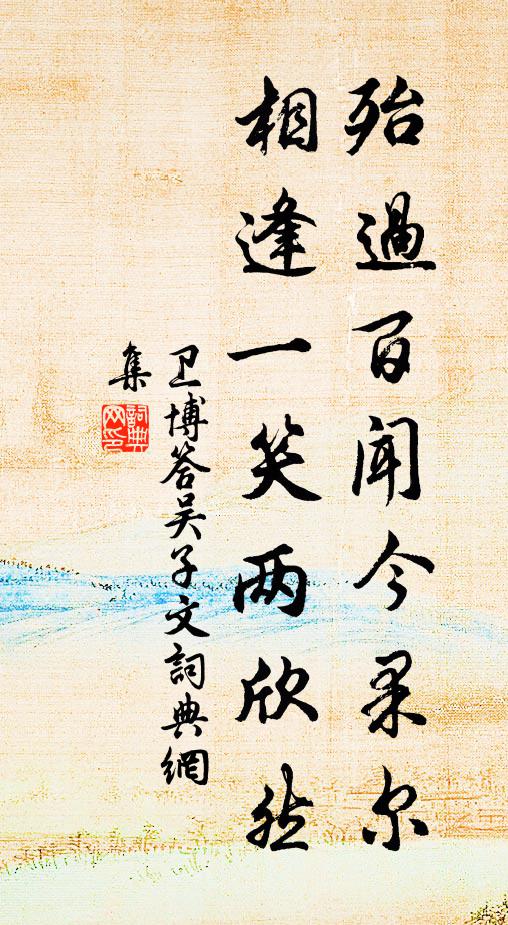 殆過百闻今果尔
相逢一笑两欣然
卫博答吴子文詞典網
集
詞典
网印